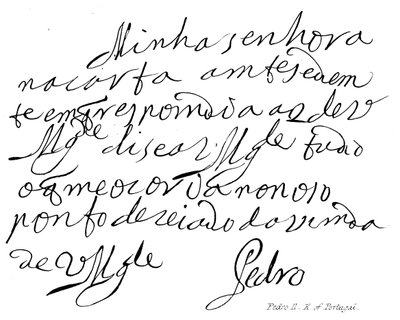 Minha senhora
na carta amtesedem
te em q̃ respomdia as de v
Mg.de dise a V Mg.de tudo
o q̃ me ocorria no noso
ponto dezeiado da vimda
de V Mg.de Pedro
Pedro II. K. of Portugal.